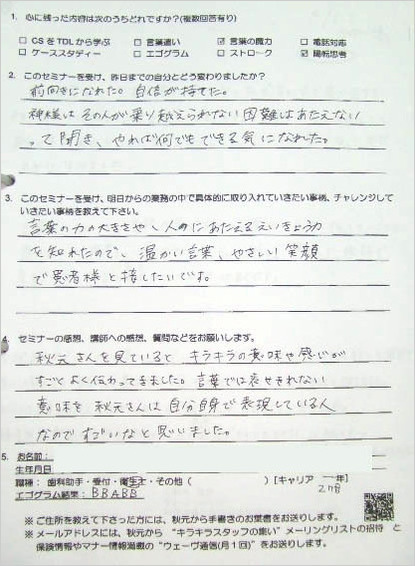 1. 心に残った内容は次のうちどれですか？(複数回答有り)
□ CSをTDLから学ぶ □ 言葉遣い ☑ 言葉の魔力 □ 電話対応
□ ケーススタディー □ エゴグラム □ ストローク ☑ 陽転思考
2. このセミナーを受け、昨日までの自分とどう変わりましたか？
前向きになれた。自信が持てた。
神様は その人が乗り越えられない困難はあたえない
って聞き、やれば何でもできる気になれた。
3. このセミナーを受け、明日からの業務の中で具体的に取り入れていきたい事柄、チャレンジして
いきたい事柄を教えて下さい。
言葉の力の大きさや、人のにあたえるえいきょう力
を知れたので、温かい言葉、やさしい笑顔
で患者様と接したいです。
4. セミナーの感想、講師への感想、質問などをお願いします。
秋元さんを見ていると キラキラの意味や感じが
すごとよく伝わってきました。言葉では表せきれない
意味を 秋元さんは自分自身で表現している人
なので すごいなと思いました。
5. お名前：
生年月日
職種：歯科助手・受付・衛生士・その他（ ）[キャリア 年]
エゴグラム結果：BBABB
※ ご住所を教えて下さった方には、秋元から手書きのお葉書をお送りします。
※メールアドレスには、秋元から “キラキラスタッフの集い”メーリングリストの招待 と
保険情報やマナー情報満載の “ウェーヴ通信(月1回)” をお送りします。